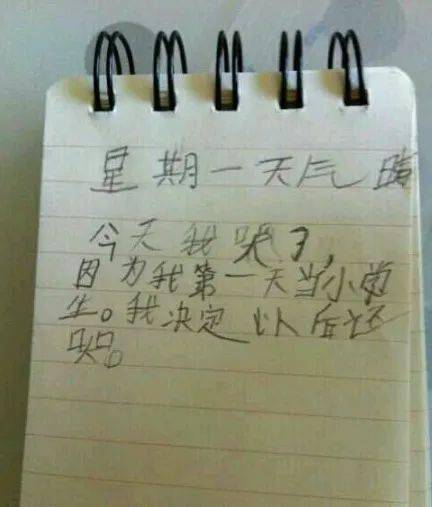 星期一天气晴
今天我哭了，
因为我第一天当小学
生。我决定以后还
哭。